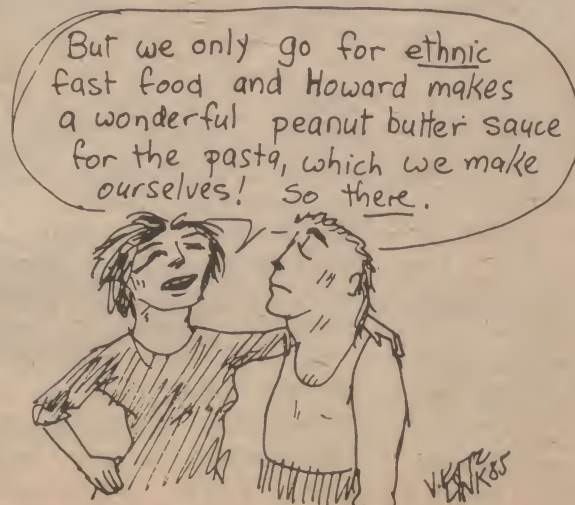 But we only go for ethnic
fast food and Howard makes
a wonderful peanut butter sauce
for the pasta, which we make
ourselves! So there.